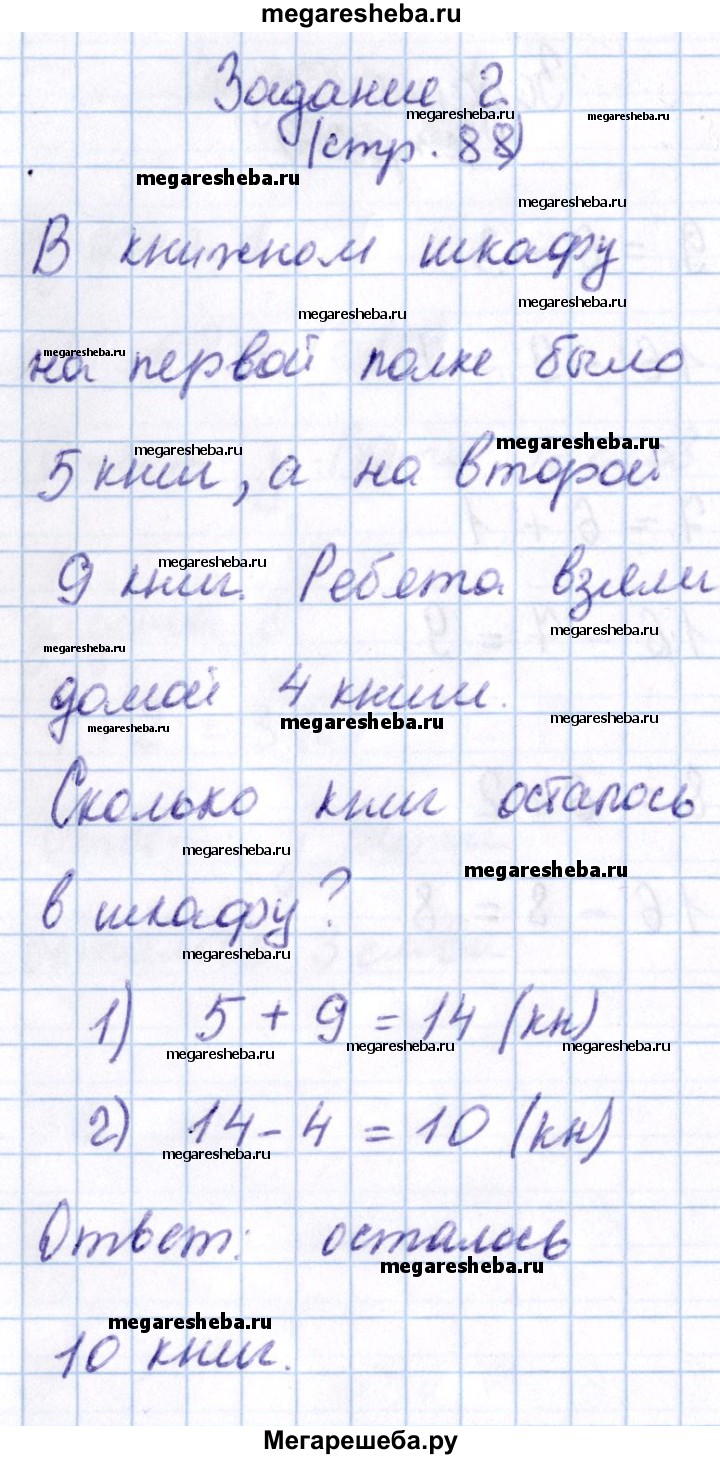 megaresheba.ru
Задание 2
megaresheba.ru
megaresheba.ru
(стр. 88)
megaresheba.ru
megaresheba.ru
В книжном шкафу
megaresheba.ru
megaresheba.ru
megaresheba.ru
на первой полке было
megaresheba.ru
megaresheba.ru
5 книг, а на второй
megaresheba.ru
9 книг. Ребята взяли
megaresheba.ru
megaresheba.ru
домой 4 книги.
megaresheba.ru
megaresheba.ru
megaresheba.ru
Сколько книг осталось
megaresheba.ru
megaresheba.ru
в шкафу?
megaresheba.ru
1) 5 + 9 = 14 (кн)
megaresheba.ru
megaresheba.ru
megaresheba.ru
2) 14 - 4 = 10 (кн)
megaresheba.ru
Ответ: осталось
megaresheba.ru
megaresheba.ru
10 книг.
Мегарешеба.ру